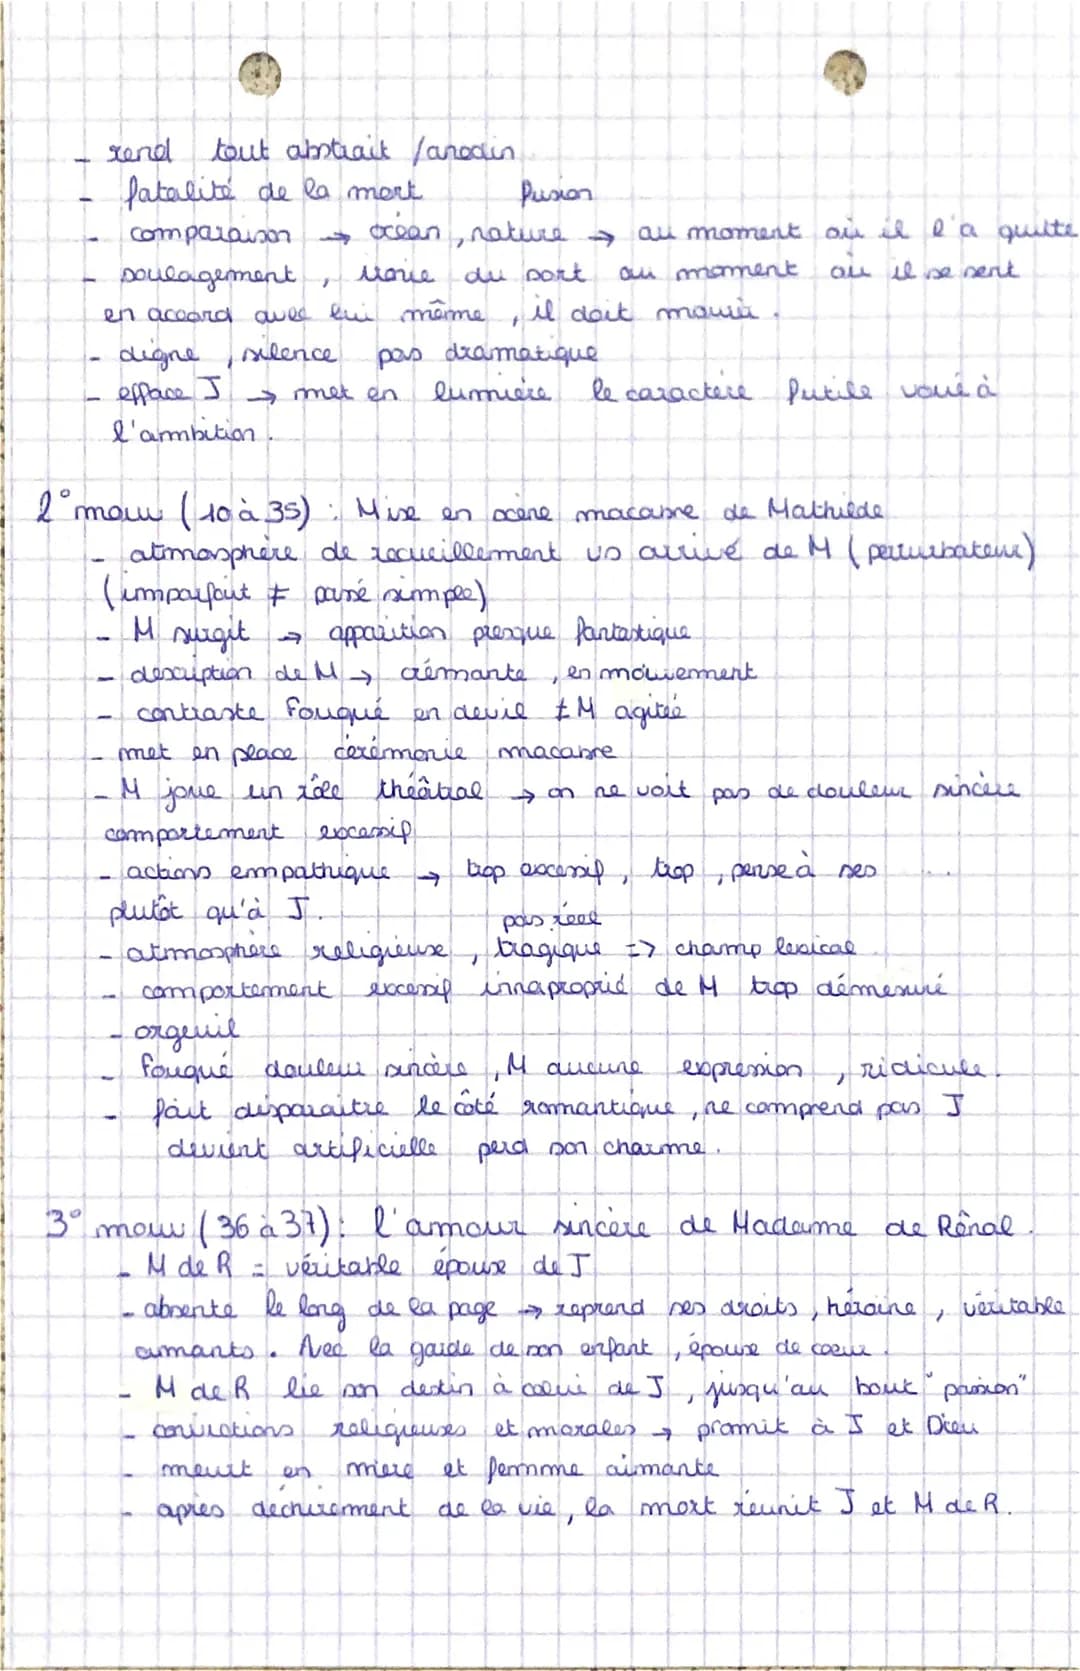 - rend tout abstrait / anodin
- fatalité de la mort fusion
- comparaison → océan, nature → au moment où il l'a quitte
- soulagement, ironie du sort au moment où il se sent
en accord avec lui même, il doit mourir.
- digne, silence pas dramatique
- efface J → met en lumière le caractère futile voué à
l'ambition.
2° mouv (10 à 35) : Mise en scène macabre de Mathilde
- atmosphère de recueillement vs arrivé de M (perturbateur)
(imparfait ≠ passé simple)
- M surgit → apparition presque fantastique
- description de M → , en mouvement
- contraste Fouqué en deuil ≠ M agitée
- met en place cérémonie macabre
- M joue un rôle théâtral → on ne voit pas de douleur sincère
comportement excessif
- actions empathique → trop excessif, trop, pense à ses ...
plutôt qu'à J.
pas réel
- atmosphère religieuse, tragique => champ lexical
- comportement excessif innaproprié de M trop démesuré
- orgeuil
- Fouqué douleur sincère, M aucune expression, ridicule.
- fait disparaitre le côté romantique, ne comprend pas J
devient artificielle perd son charme.
3° mouv (36 à 37) : l'amour sincère de Madame de Rênal.
- M de R = véritable épouse de J
- absente le long de la page → reprend ses droits, héroïne, véritable
amants. Avec la garde de son enfant, épouse de coeur.
- M de R lie son destin à celui de J, jusqu'au bout "passion"
- convictions religieuses et morales → promit à J et Dieu
- meurt en mère et femme aimante
- après déchirement de la vie, la mort réunit J et M de R.